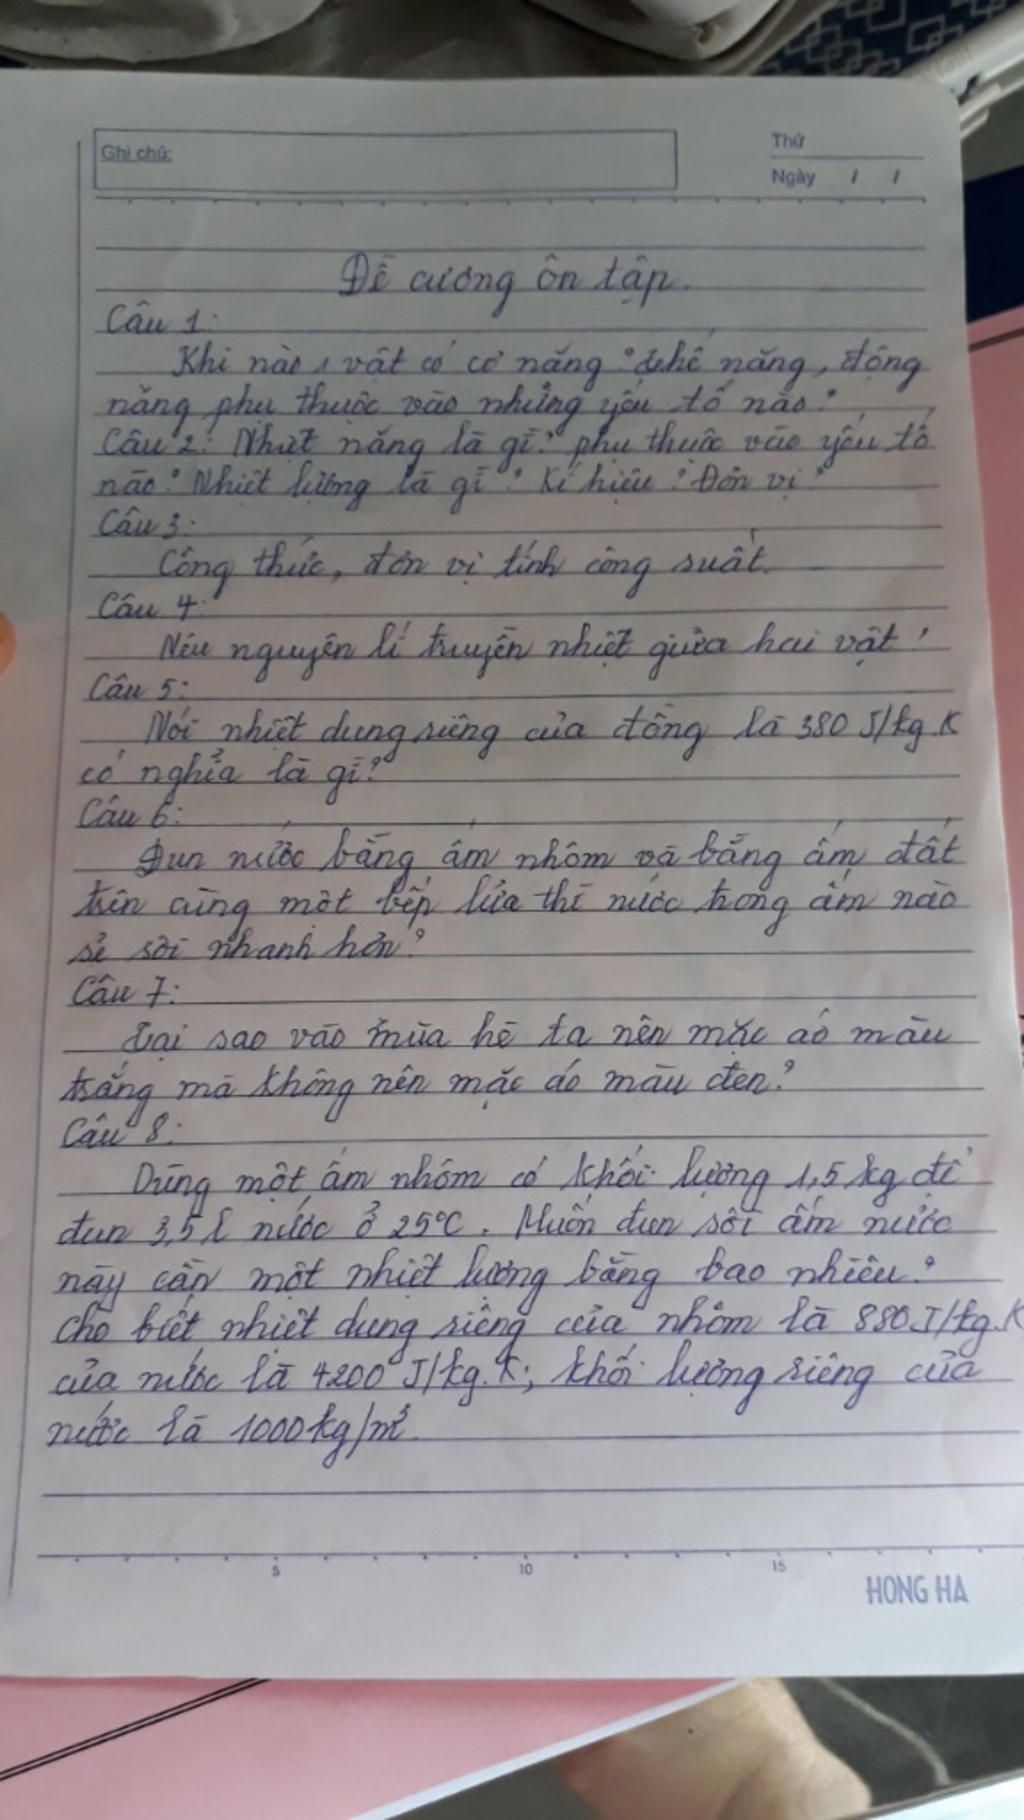 Ghi chú:
Thứ
Ngày / /
Đề cương ôn tập.
Câu 1:
Khi nào, vật có cơ năng? thế năng, động
năng phụ thuộc vào những yếu tố nào?
Câu 2: Nhiệt năng là gì? phụ thuộc vào yếu tố
nào? Nhiệt lượng là gì? Kí hiệu? Đơn vị?
Câu 3:
Công thức, đơn vị tính công suất.
Câu 4:
Nêu nguyên lí truyền nhiệt giữa hai vật!
Câu 5:
Nói nhiệt dung riêng của đồng là 380 J/kg.K
có nghĩa là gì?
Câu 6:
Đun nước bằng ấm nhôm và bằng ấm đất
trên cùng một bếp lửa thì nước trong ấm nào
sẽ sôi nhanh hơn?
Câu 7:
Tại sao vào mùa hè ta nên mặc áo màu
trắng mà không nên mặc áo màu đen?
Câu 8:
Dùng một ấm nhôm có khối lượng 1,5 kg để
đun 3,5 l nước ở 25°C. Muốn đun sôi ấm nước
này cần một nhiệt lượng bằng bao nhiêu?
cho biết nhiệt dung riêng của nhôm là 880J/kg.K
của nước là 4200 J/kg.K; khối lượng riêng của
nước là 1000kg/m³.
5 10 15
HONG HA